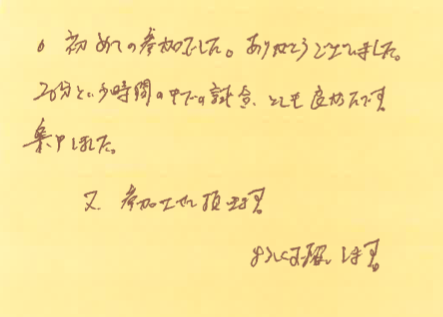 。初めての参加でした。ありがとうございました。
20分という時間の中での試合、とても良かったです
集中しました。
又、参加させて頂きます
よろしくお願いします。